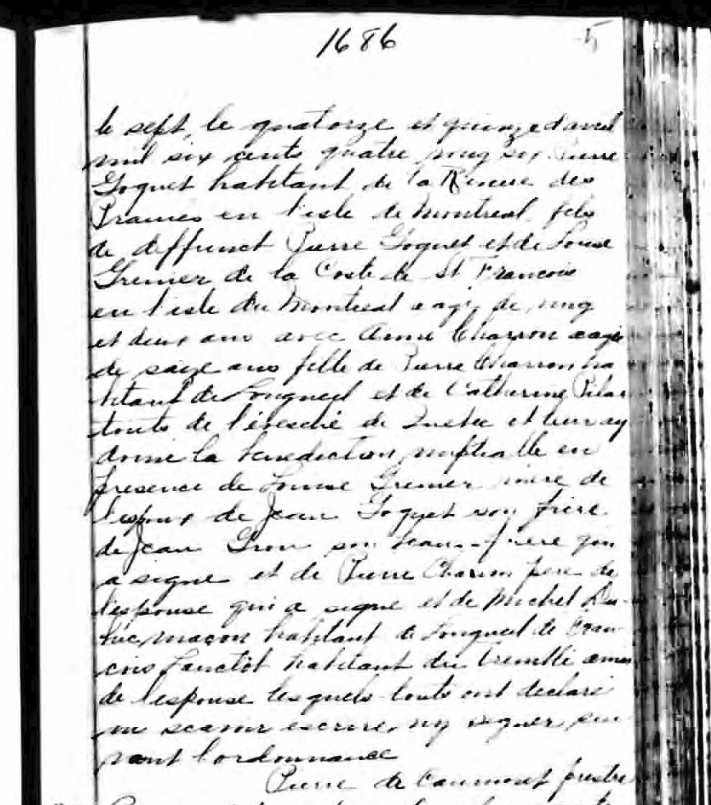 1686
5
le sept, le quatorze et quinze d'avril
mil six cents quatre vingt six Pierre
Goguet habitant de la Riviere des
Prairies en l'isle de Montreal fils
de deffunct Pierre Goguet et de Louise
Grenier de la Coste de St Francois
en l'isle du Montreal eagé de vingt
et deux ans avec Anne Charron eagée
de saize ans fille de Pierre Charron ha
bitant de Longueil et de Catherine Pilar
touts de l'évesché de Quebec et leur ay
donné la benediction nuptialle en
presence de Louise Grenier mere de
l'espoux de Jean Goguet son frere
de Jean Grou son beau-frere qui
a signé et de Pierre Charron pere de
l'espouse qui a signé et de Michel Du-
buc, maçon habitant de Longueil de Fran
cois Lanctôt habitant du tremblé amis
de l'espouse lesquels touts ont declaré
ne scavoir escrire, ny signer sui
vant l'ordonnance
Pierre de Caumont prestre